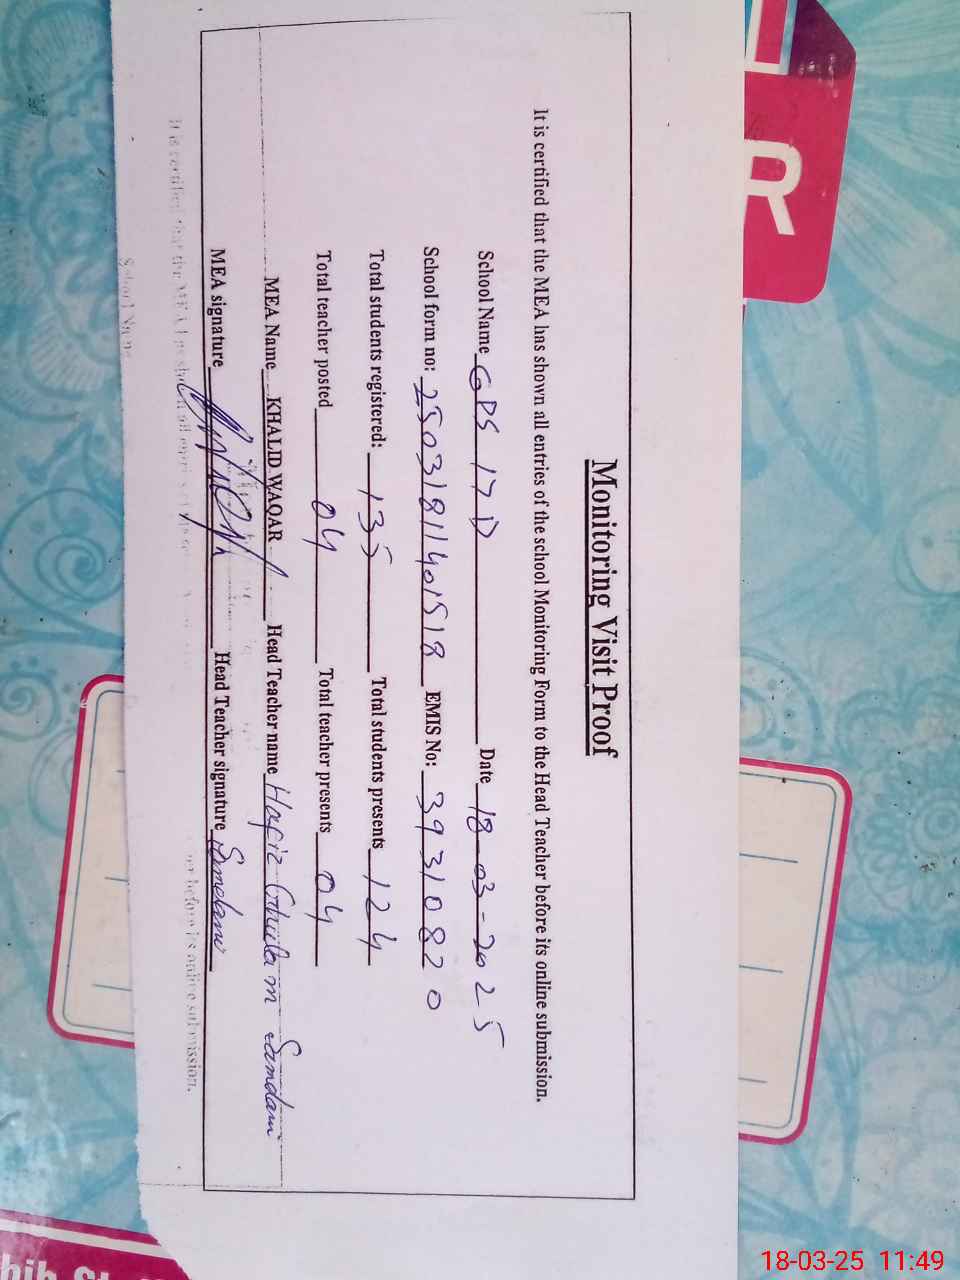 Monitoring Visit Proof
It is certified that the MEA has shown all entries of the school Monitoring Form to the Head Teacher before its online submission.
School Name GPS 17 D Date 18-03-2025
School form no: 25031811401518 EMIS No: 39310820
Total students registered: 135 Total students presents 124
Total teacher posted 04 Total teacher presents 04
MEA Name KHALID WAQAR Head Teacher name Hafiz Ghulam Samdani
MEA signature Head Teacher signature Samdani
It is certified that the MEA has shown all entries before its online submission.
School Name
R
18-03-25 11:49